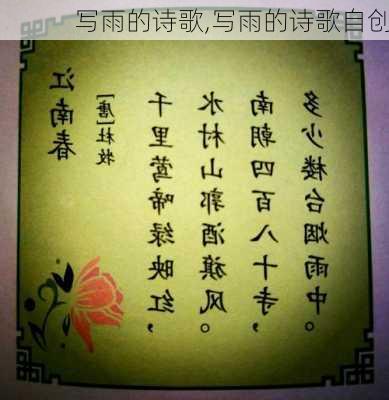 写雨的诗歌,写雨的诗歌自创
江南春
[唐]杜牧
千里莺啼绿映红，
水村山郭酒旗风。
南朝四百八十寺，
多少楼台烟雨中。